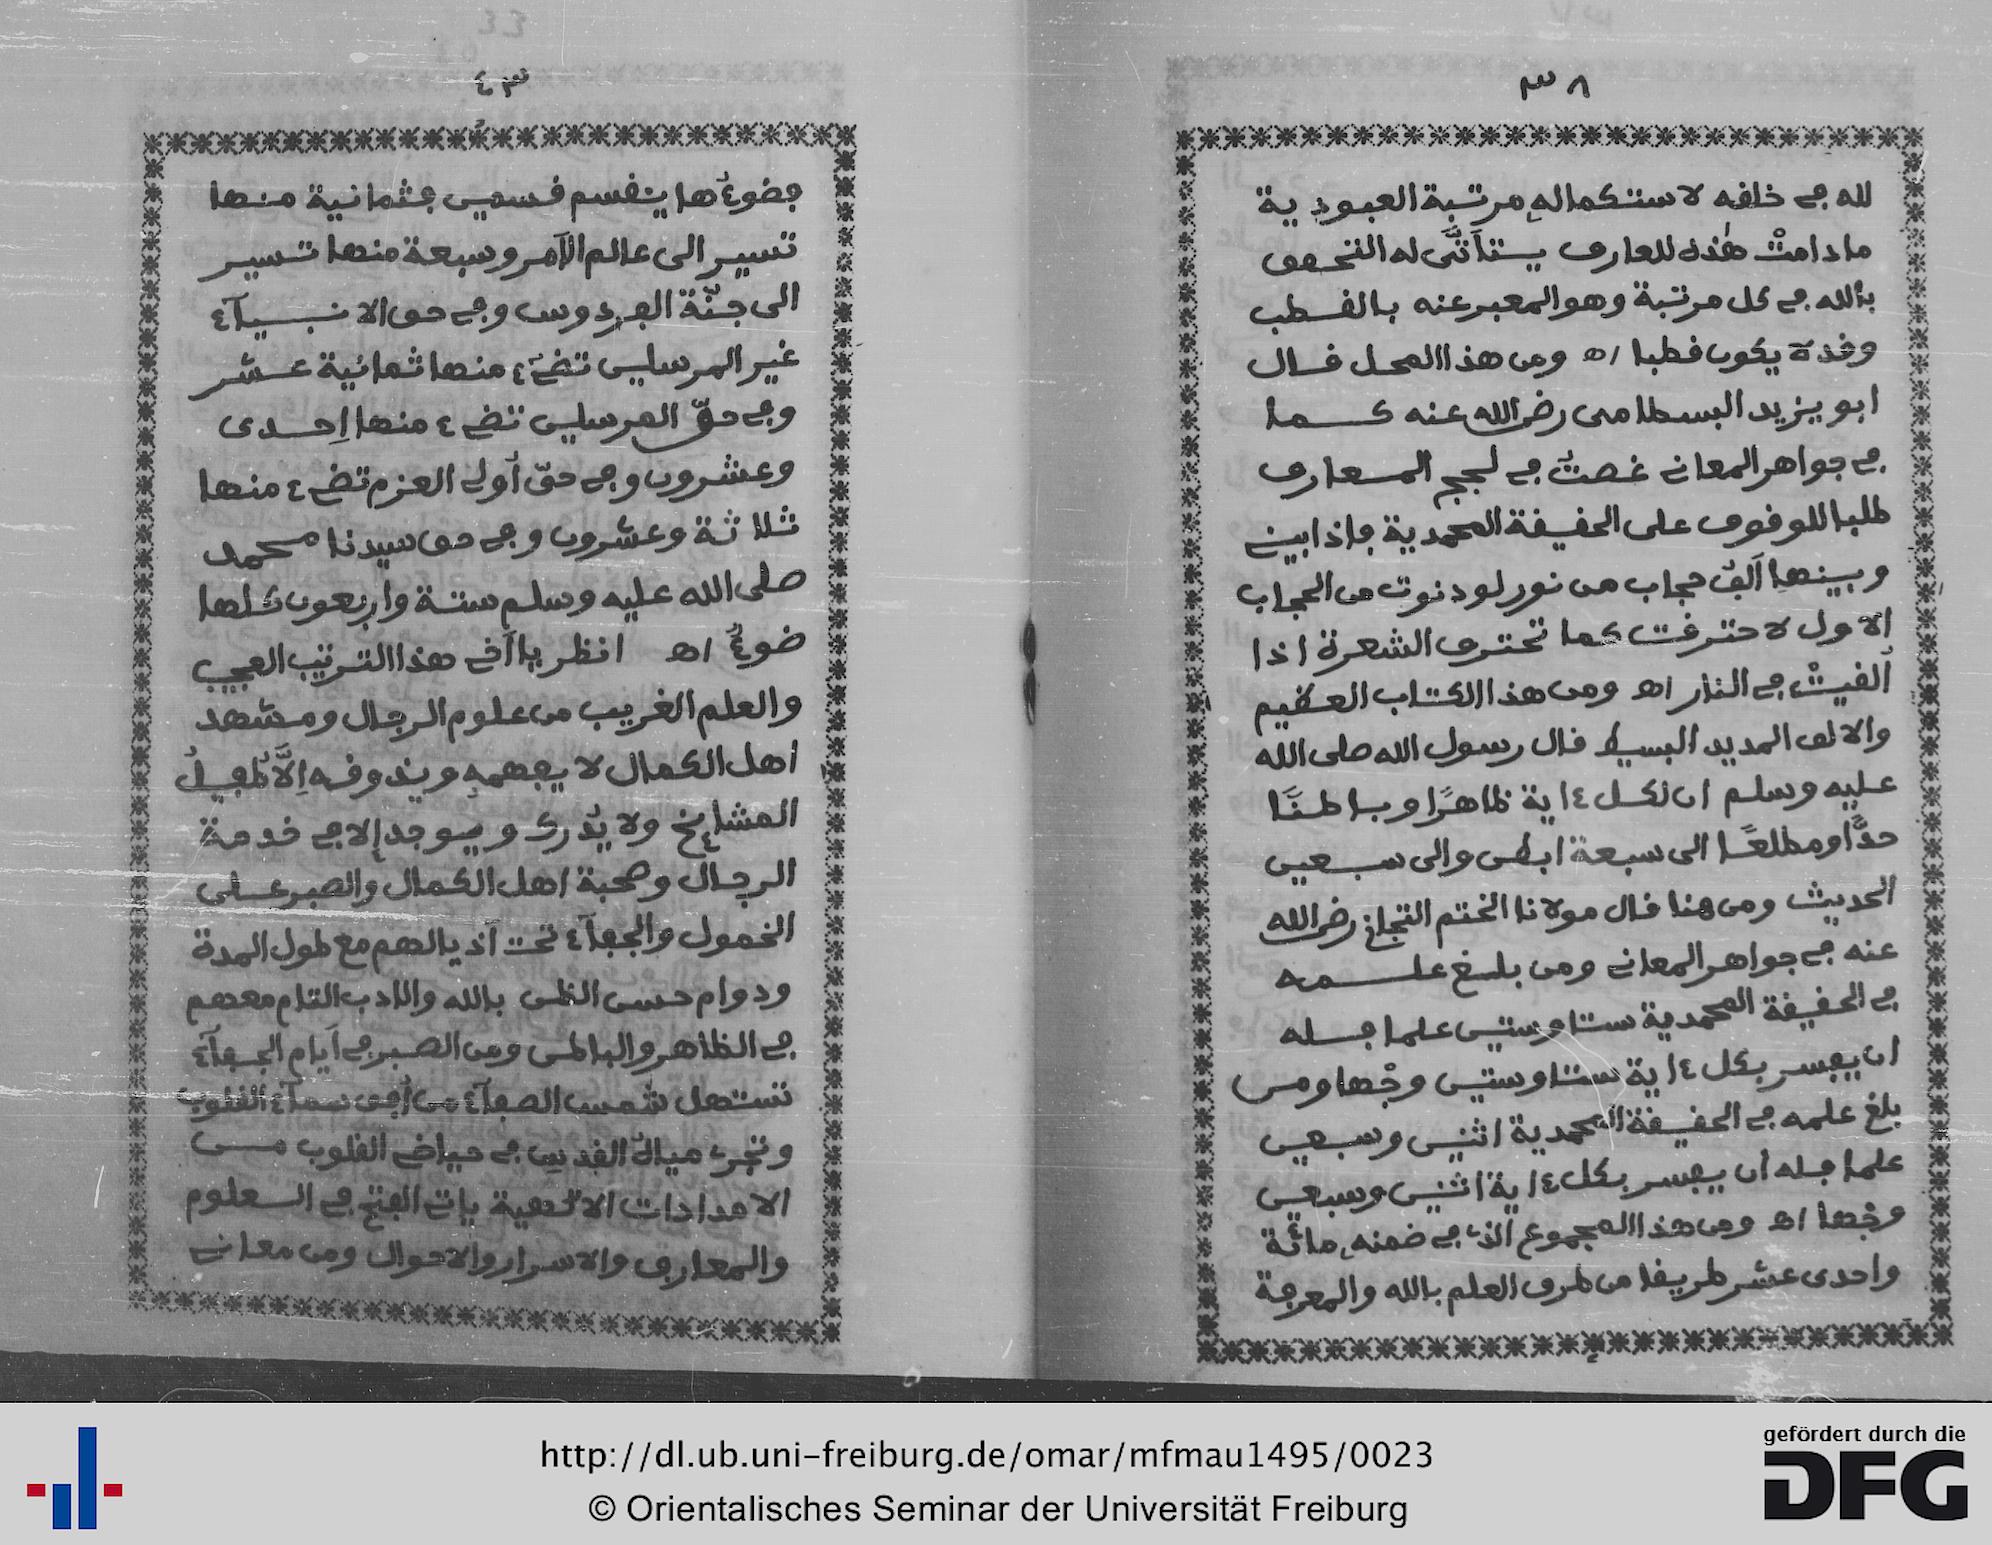 ٣٨
لله في خلقه لاستكماله مرتبة العبودية
ما دامتْ هذه للعارف يستأتَّى له التحقق
بالله في كل مرتبة وهو المعبر عنه بالقطب
وقدة يكون قطبا اه ومن هذا المحل قال
ابو يزيد البسطامى رضي الله عنه كما
في جواهر المعاني غصتُ في لجج المعارف
طلبا للوقوف على الحقيقة المحمدية فاذا بيني
وبينها ألف حجاب من نور لو دنوت من الحجاب
الاول لاحترقت كما تحترق الشعرة اذا
ألقيتْ في النار اه ومن هذا الكتاب العظيم
والالف المديد البسيط قال رسول الله صلى الله
عليه وسلم ان لكل ءاية ظاهرًا وباطنًا
حدًّا ومطلعًا الى سبعة ابطن والى سبعين
الحديث ومن هنا قال مولانا الختم التجاني رضي الله
عنه في جواهر المعاني ومن بلغ علمه
في الحقيقة المحمدية ستا وستين علما فله
ان يفسر بكل ءاية ستا وستين وجْها ومن
بلغ علمه في الحقيقة المحمدية اثنين وسبعين
علما فله أن يفسر بكل ءاية اثنين وسبعين
وجْها اه ومن هذا المجموع الذي في ضمنه مائة
واحدى عشر طريقا من طرق العلم بالله والمعرفة
٤٣
فضوءُها ينقسم قسمين فثمانية منها
تسير الى عالم الأمر وسبعة منها تسير
الى جنّة الفردوس وفي حق الانبيآء
غير المرسلين تضيء منها ثمانية عشر
وفي حقّ المرسلين تضيء منها إحدى
وعشرون وفي حقّ أولي العزم تضيء منها
ثلاثة وعشرون وفي حق سيدنا محمد
صلى الله عليه وسلم ستة واربعون كلها
ضوءٌ اه انظر يا أخي هذا الترتيب العجيب
والعلم الغريب من علوم الرجال ومشهد
اهل الكمال لا يفهمه ويذوقه إلَّا طُفيلُ
المشايخ ولا يُدرك ويوجد إلا في خدمة
الرجال وصحبة اهل الكمال والصبر على
الخمول والجفآء تحت أذيالهم مع طول المدة
ودوام حسن الظن بالله والادب التام معهم
في الظاهر والباطن ومن الصبر في أيام الجفآء
تستهل شمس الصفآء من أفق سمآء القلوب
وتجري مياهُ القدس في حياض القلوب من
الامدادات الالهية ياتي الفتح في العلوم
والمعارف والاسرار والاحوال ومن معاني
http://dl.ub.uni-freiburg.de/omar/mfmau1495/0023
© Orientalisches Seminar der Universität Freiburg
gefördert durch die
DFG